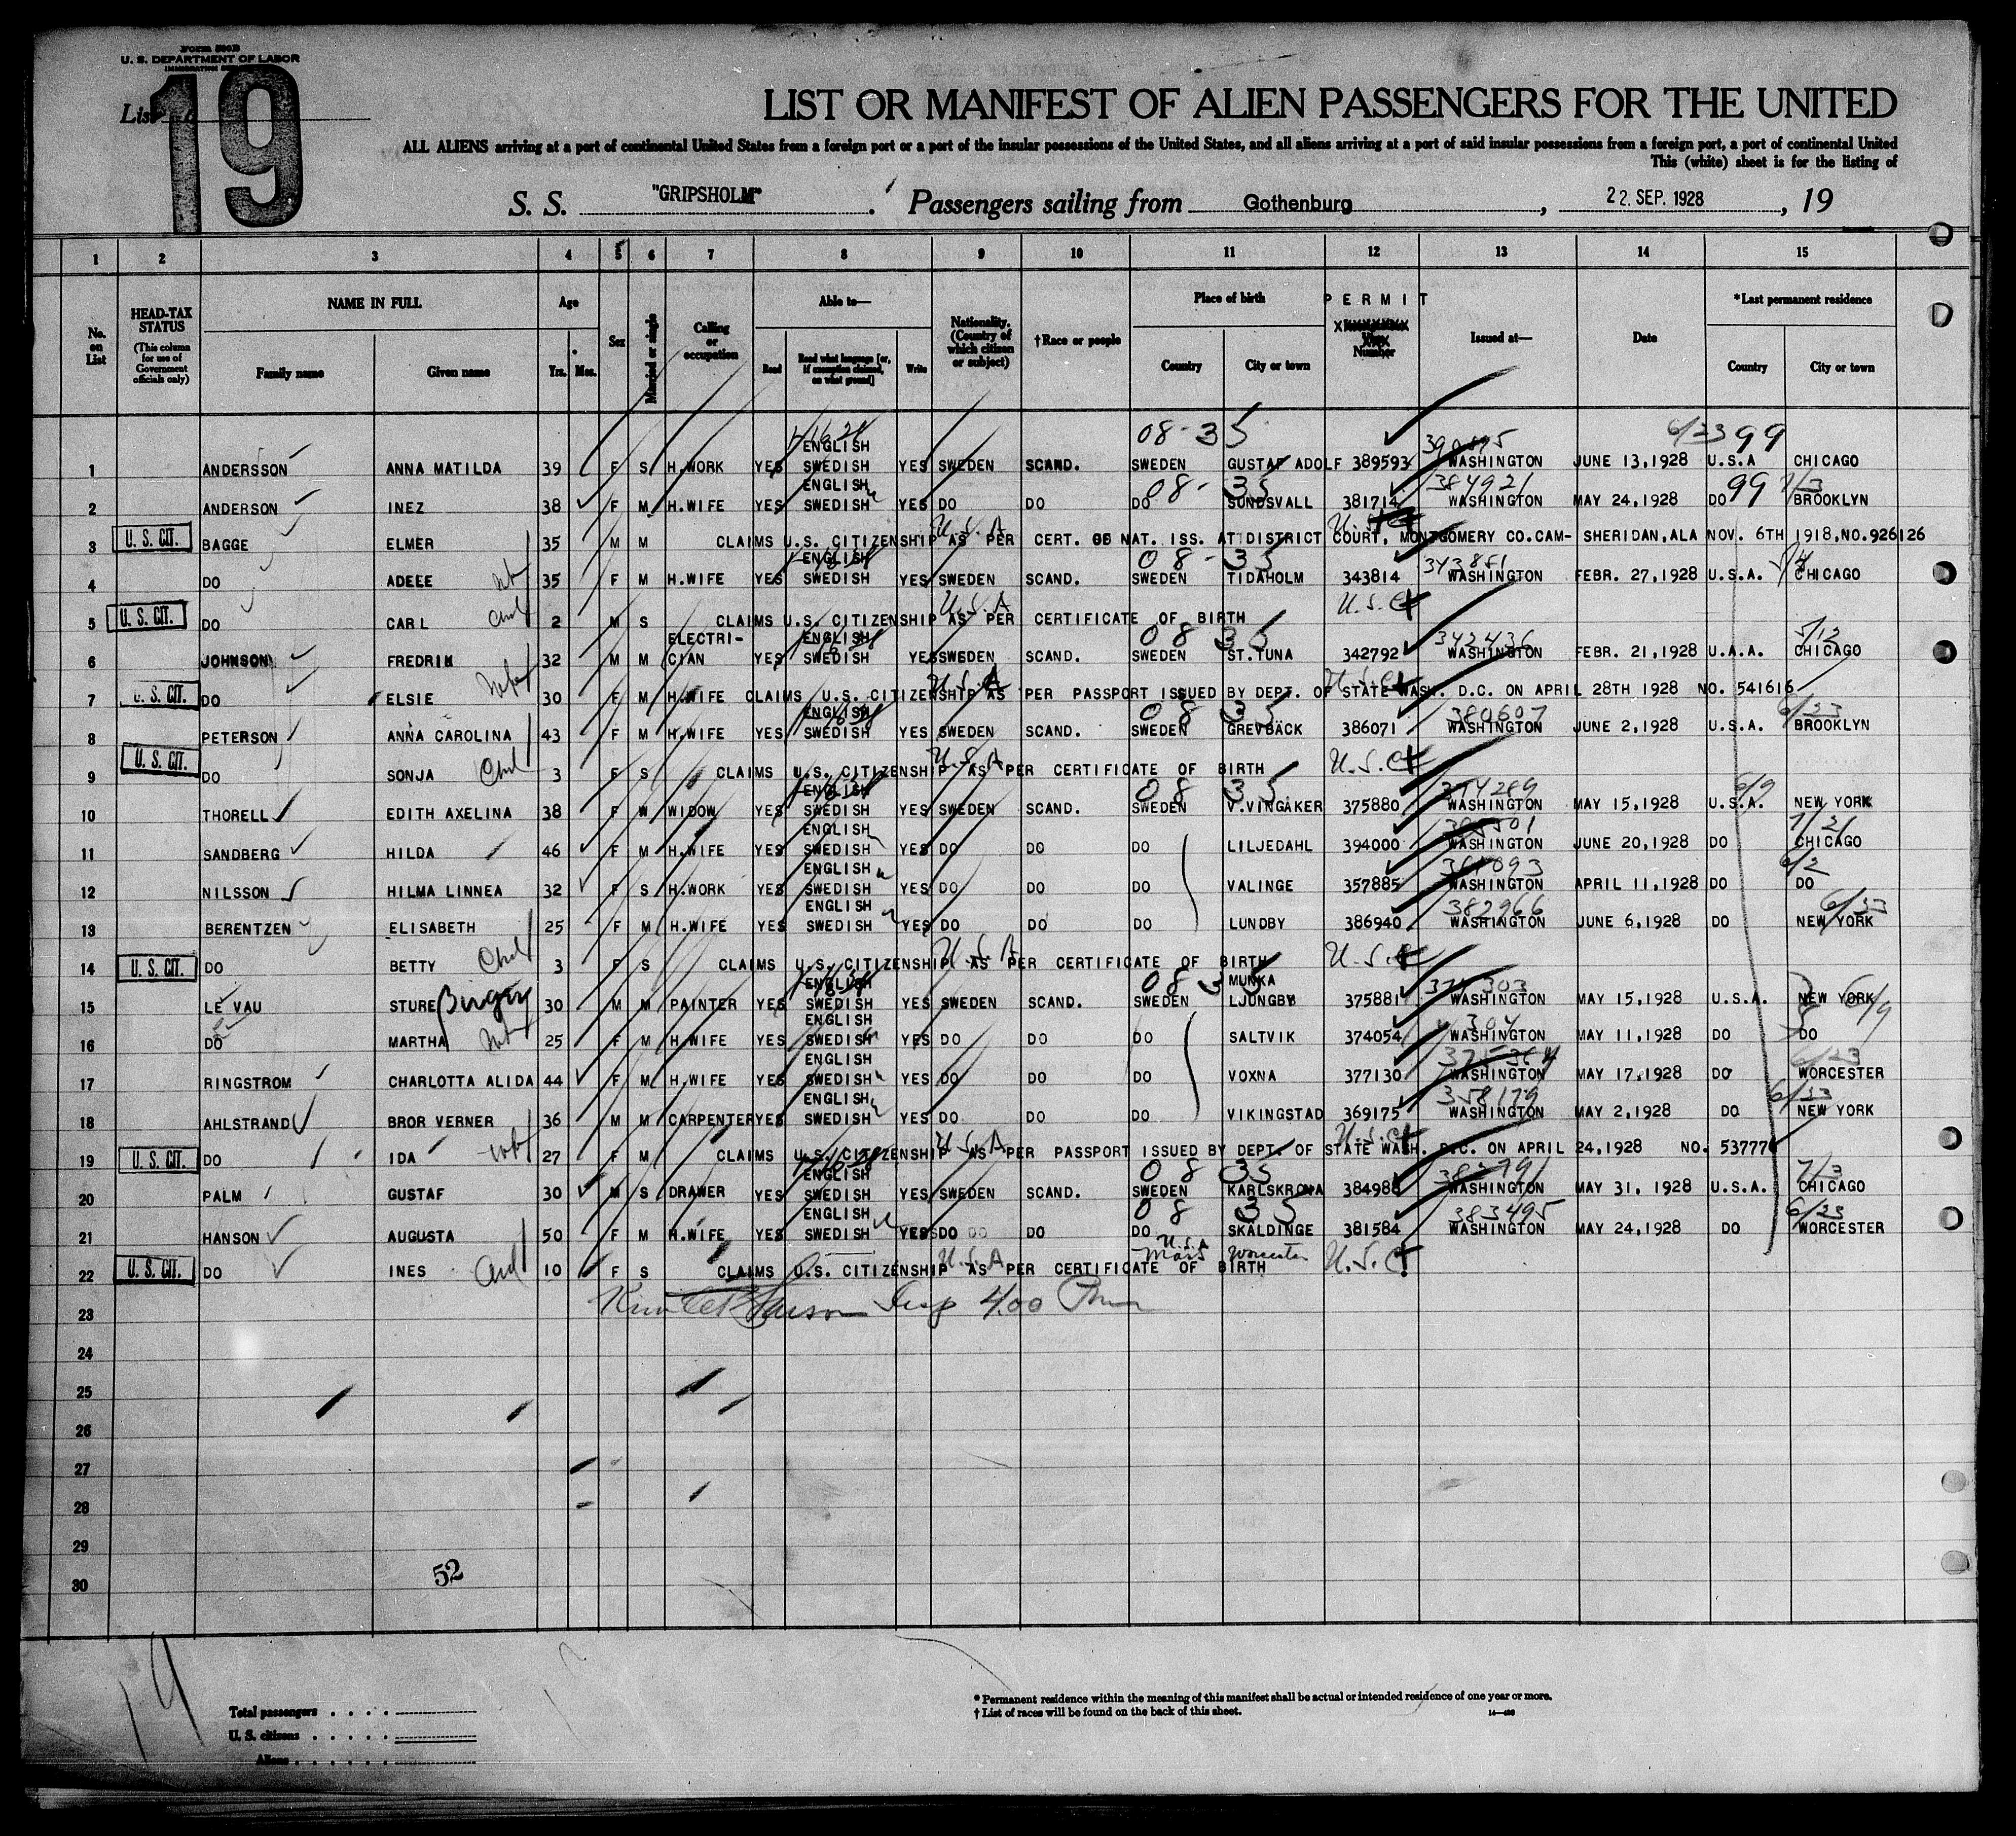 Form 500B
U. S. DEPARTMENT OF LABOR
IMMIGRATION SERVICE
List 19
LIST OR MANIFEST OF ALIEN PASSENGERS FOR THE UNITED
ALL ALIENS arriving at a port of continental United States from a foreign port or a port of the insular possessions of the United States, and all aliens arriving at a port of said insular possessions from a foreign port, a port of continental United
This (white) sheet is for the listing of
S. S. "GRIPSHOLM" . Passengers sailing from Gothenburg , 22. SEP. 1928 , 19
1 2 3 4 5 6 7 8 9 10 11 12 13 14 15
No. on List
HEAD-TAX STATUS (This column for use of Government officials only)
NAME IN FULL
Family name Given name
Age
Yrs. Mos.
Sex
Married or single
Calling or occupation
Able to—
Read Read what language [or, if exemption claimed, on what ground] Write
Nationality. (Country of which citizen or subject)
†Race or people
Place of birth
Country City or town
PERMIT
Number
Issued at—
Date
*Last permanent residence
Country City or town
08-35 390895 6/23 99
ENGLISH
1 ANDERSSON ANNA MATILDA 39 F S H.WORK YES SWEDISH YES SWEDEN SCAND. SWEDEN GUSTAF ADOLF 389593 WASHINGTON JUNE 13,1928 U.S.A CHICAGO
ENGLISH 08-35 384921 99 7/3
2 ANDERSON INEZ 38 F M H.WIFE YES SWEDISH YES DO DO DO SUNDSVALL 381714 WASHINGTON MAY 24,1928 DO BROOKLYN
U.S.A
3 U. S. CIT. BAGGE ELMER 35 M M CLAIMS U.S. CITIZENSHIP AS PER CERT. OF NAT. ISS. AT DISTRICT COURT, MONTGOMERY CO.CAM- SHERIDAN,ALA NOV. 6TH 1918,NO.926126
ENGLISH 08-35 343851 5/4
4 DO ADELE 35 F M H.WIFE YES SWEDISH YES SWEDEN SCAND. SWEDEN TIDAHOLM 343814 WASHINGTON FEBR. 27,1928 U.S.A. CHICAGO
U.S.A U.S.C
5 U. S. CIT. DO CARL 2 M S CLAIMS U.S. CITIZENSHIP AS PER CERTIFICATE OF BIRTH
ELECTRI- ENGLISH 08 35 342436 5/12
6 JOHNSON FREDRIK 32 M M CIAN YES SWEDISH YES SWEDEN SCAND. SWEDEN ST.TUNA 342792 WASHINGTON FEBR. 21,1928 U.A.A. CHICAGO
U.S.A
7 U. S. CIT. DO ELSIE 30 F M H.WIFE CLAIMS U.S. CITIZENSHIP AS PER PASSPORT ISSUED BY DEPT. OF STATE WASH. D.C. ON APRIL 28TH 1928 NO. 541616
ENGLISH 08 35 380607 6/23
8 PETERSON ANNA CAROLINA 43 F M H.WIFE YES SWEDISH YES SWEDEN SCAND. SWEDEN GREVBÄCK 386071 WASHINGTON JUNE 2,1928 U.S.A. BROOKLYN
U.S.A U.S.C
9 U. S. CIT. DO SONJA 3 F S CLAIMS U.S. CITIZENSHIP AS PER CERTIFICATE OF BIRTH
ENGLISH 08 35 6/9
10 THORELL EDITH AXELINA 38 F W WIDOW YES SWEDISH YES SWEDEN SCAND. SWEDEN V.VINGÅKER 375880 WASHINGTON MAY 15,1928 U.S.A. NEW YORK
ENGLISH 7/21
11 SANDBERG HILDA 46 F M H.WIFE YES SWEDISH YES DO DO DO LILJEDAHL 394000 WASHINGTON JUNE 20,1928 DO CHICAGO
ENGLISH 6/2
12 NILSSON HILMA LINNEA 32 F S H.WORK YES SWEDISH YES DO DO DO VALINGE 357885 WASHINGTON APRIL 11,1928 DO DO
ENGLISH 382966 6/23
13 BERENTZEN ELISABETH 25 F M H.WIFE YES SWEDISH YES DO DO DO LUNDBY 386940 WASHINGTON JUNE 6,1928 DO NEW YORK
U.S.A U.S.C
14 U. S. CIT. DO BETTY 3 F S CLAIMS U.S. CITIZENSHIP AS PER CERTIFICATE OF BIRTH
ENGLISH 08 35 MUNKA
15 LE VAU STURE Birger 30 M M PAINTER YES SWEDISH YES SWEDEN SCAND. SWEDEN LJUNGBY 375881 WASHINGTON MAY 15,1928 U.S.A. NEW YORK 6/9
ENGLISH
16 DO MARTHA 25 F M H.WIFE YES SWEDISH YES DO DO DO SALTVIK 374054 WASHINGTON MAY 11,1928 DO DO
ENGLISH 6/23
17 RINGSTROM CHARLOTTA ALIDA 44 F M H.WIFE YES SWEDISH YES DO DO DO VOXNA 377130 WASHINGTON MAY 17,1928 DO WORCESTER
ENGLISH 358179 6/23
18 AHLSTRAND BROR VERNER 36 M M CARPENTER YES SWEDISH YES DO DO DO VIKINGSTAD 369175 WASHINGTON MAY 2,1928 DO NEW YORK
U.S.A U.S.C
19 U. S. CIT. DO IDA 27 F M CLAIMS U.S. CITIZENSHIP AS PER PASSPORT ISSUED BY DEPT. OF STATE WASH. D.C. ON APRIL 24,1928 NO. 53777
ENGLISH 08 35 7/3
20 PALM GUSTAF 30 M S DRAWER YES SWEDISH YES SWEDEN SCAND. SWEDEN KARLSKRONA 384988 WASHINGTON MAY 31, 1928 U.S.A. CHICAGO
ENGLISH 08 35 383495 6/23
21 HANSON AUGUSTA 50 F M H.WIFE YES SWEDISH YES DO DO DO SKÄLDINGE 381584 WASHINGTON MAY 24,1928 DO WORCESTER
U.S.A U.S.A Mass Worcester U.S.C
22 U. S. CIT. DO INES 10 F S CLAIMS U.S. CITIZENSHIP AS PER CERTIFICATE OF BIRTH
23 Larson Insp 4.00
24
25
26
27
28
29
30
52
19
Total passengers
U. S. citizens
Aliens
* Permanent residence within the meaning of this manifest shall be actual or intended residence of one year or more.
† List of races will be found on the back of this sheet.